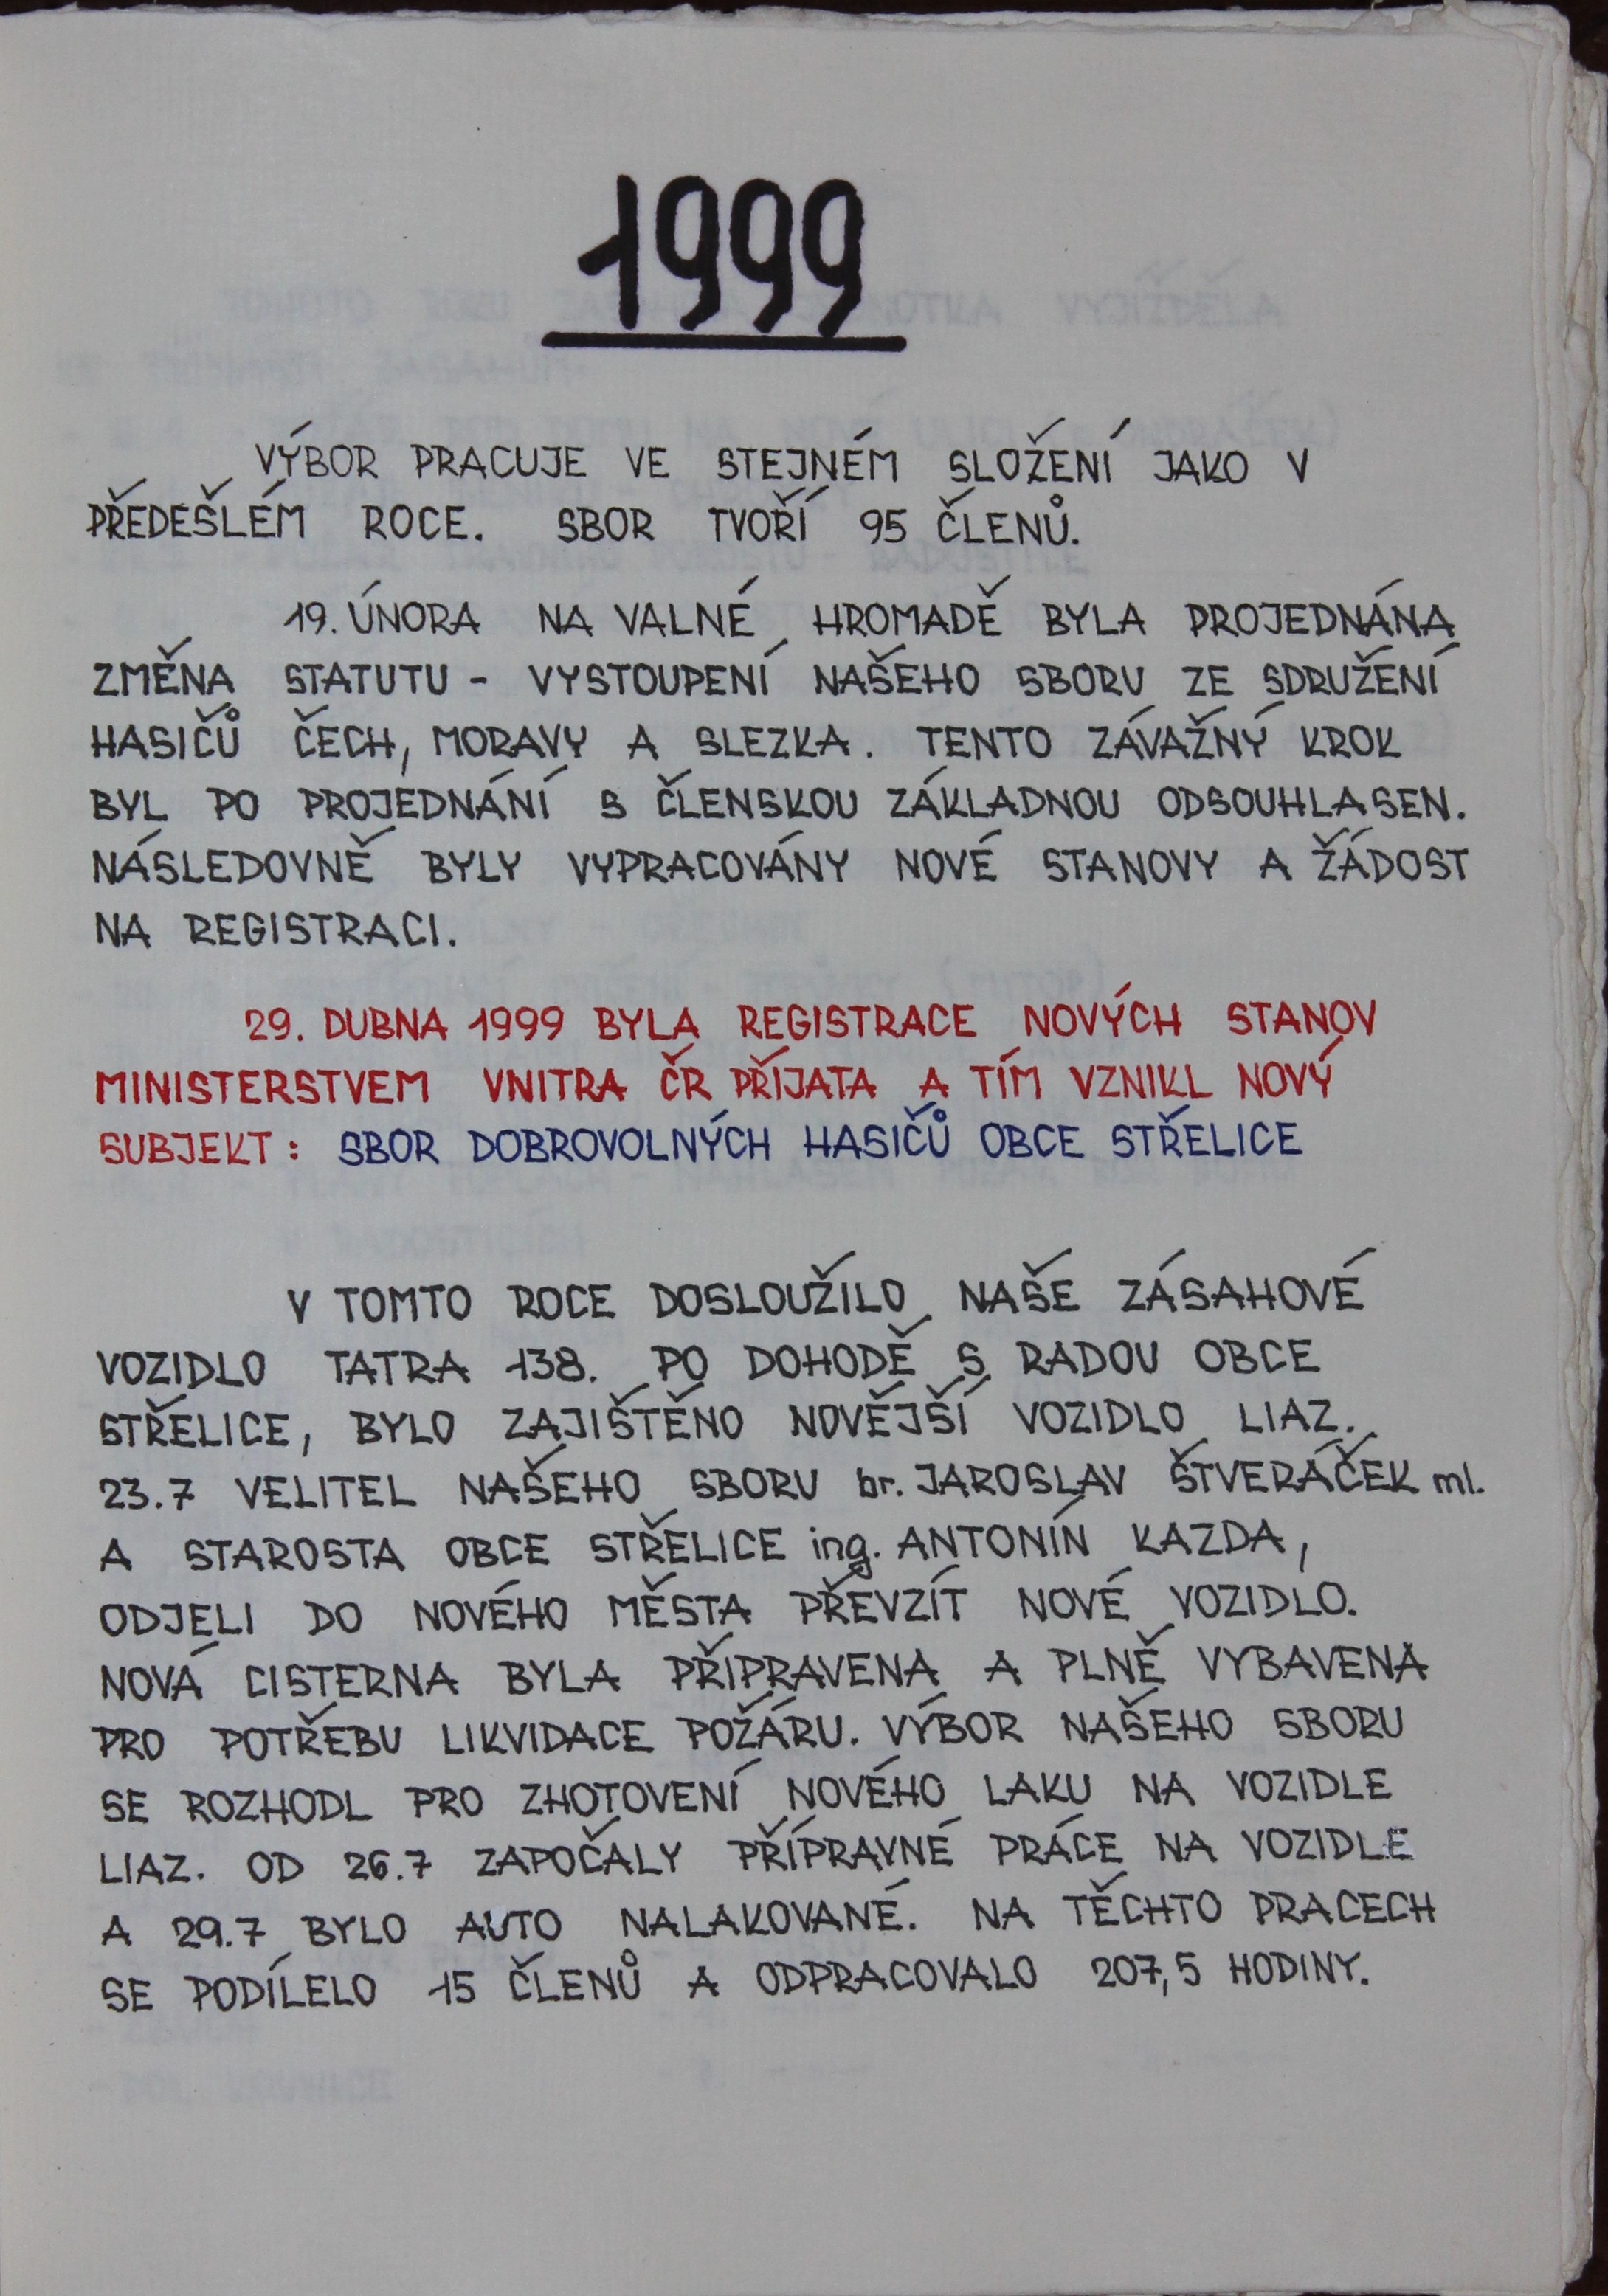 1999
VÝBOR PRACUJE VE STEJNÉM SLOŽENÍ JAKO V
PŘEDEŠLÉM ROCE. SBOR TVOŘÍ 95 ČLENŮ.
19. ÚNORA NA VALNÉ HROMADĚ BYLA PROJEDNÁNA
ZMĚNA STATUTU - VYSTOUPENÍ NAŠEHO SBORU ZE SDRUŽENÍ
HASIČŮ ČECH, MORAVY A SLEZKA. TENTO ZÁVAŽNÝ KROK
BYL PO PROJEDNÁNÍ S ČLENSKOU ZÁKLADNOU ODSOUHLASEN.
NÁSLEDOVNĚ BYLY VYPRACOVÁNY NOVÉ STANOVY A ŽÁDOST
NA REGISTRACI.
29. DUBNA 1999 BYLA REGISTRACE NOVÝCH STANOV
MINISTERSTVEM VNITRA ČR PŘIJATA A TÍM VZNIKL NOVÝ
SUBJEKT: SBOR DOBROVOLNÝCH HASIČŮ OBCE STŘELICE
V TOMTO ROCE DOSLOUŽILO NAŠE ZÁSAHOVÉ
VOZIDLO TATRA 138. PO DOHODĚ S RADOU OBCE
STŘELICE, BYLO ZAJIŠTĚNO NOVĚJŠÍ VOZIDLO LIAZ.
23.7 VELITEL NAŠEHO SBORU br. JAROSLAV ŠTVERÁČEK ml.
A STAROSTA OBCE STŘELICE ing. ANTONÍN KAZDA,
ODJELI DO NOVÉHO MĚSTA PŘEVZÍT NOVÉ VOZIDLO.
NOVÁ CISTERNA BYLA PŘIPRAVENA A PLNĚ VYBAVENA
PRO POTŘEBU LIKVIDACE POŽÁRU. VÝBOR NAŠEHO SBORU
SE ROZHODL PRO ZHOTOVENÍ NOVÉHO LAKU NA VOZIDLE
LIAZ. OD 26.7 ZAPOČALY PŘÍPRAVNÉ PRÁCE NA VOZIDLE
A 29.7 BYLO AUTO NALAKOVANÉ. NA TĚCHTO PRACECH
SE PODÍLELO 15 ČLENŮ A ODPRACOVALO 207,5 HODINY.